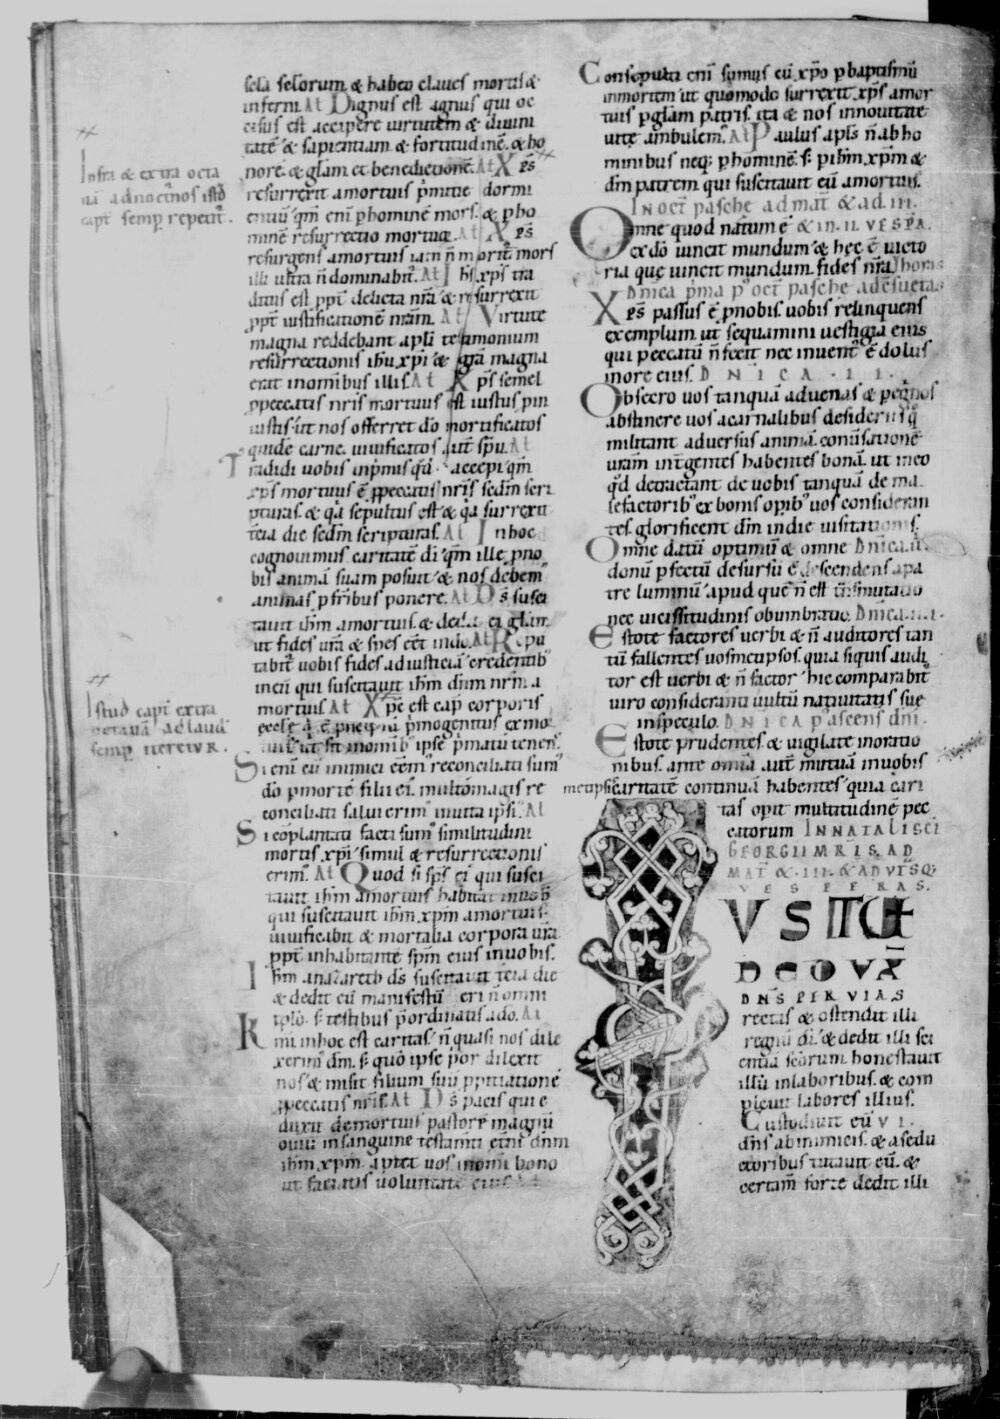 scła sęłorum & habeo claues mortis &
inferni. At Dignus est agnus qui oc
cisus est accipere uirtutem & diuini
tatē & sapientiam & fortitudinē. & ho
norē. & głam et benedictionē. At Xps̄
resurrexit amortuis p̄mitie dormi
entiū qm̄ eni p hominē mors. & p ho
minē resurrectio mortuoꝝ. At Xps̄
resurgens amortuis iam n̄ morit᷒ mors
illi ultra n̄ dominabit᷒. At Ihs̄ xps̄ tra
ditus est ppt̄ delicta nrā & resurrexit
ppt̄ iustificationē nram̄. At Virtute
magna reddebant apłi testimonium
resurrectionis ihū xpi & gr̄a magna
erat inomībus illis. At Xps̄ semel
p peccatis nris mortuus est iustus p in
iustis. ut nos offerret dō mortificatos
quidē carne. uiuificatos aut̄ spū. At
Tradidi uobis inp̄mis qd̄ & accepi qm̄
xps̄ mortuus ē p peccatis nris̄ sedm̄ scri
pturas. & qa sepultus est & qa surrexit
tcia die sedm̄ scripturas. At Inhoc
cognouimus caritatē di qm̄ ille p no
bis animā suam posuit & nos debem᷒
animas p fribus ponere. At Ds̄ susci
tauit ihm̄ amortuis. & dedit ei głam
ut fides urā & spes eēt indō. At Repu
tabit᷒ uobis fides adiusticiā credentib᷒
ineū qui suscitauit ihm̄ dnm̄ nrm̄ a
mortuis At Xpc̄ est cap̄ corporis
eccłę q̄ ē p̄ncipiū p̄mogenitus ex mo
tuis ut sit inomib᷒ ipse p̄matū tenens
Si eni cū inimici eēm᷒ reconciliati sum᷒
dō p morte filii ei᷒. multo magis re
conciliati salui erim᷒ inuita ipsi᷒. At
Si cōplantati facti sum᷒ similitudini
mortis xpi simul & resurrectionis
erim᷒. At Quod si sps̄ ei᷒ qui susci
tauit ihm̄ amortuis habitat inuob᷒
qui suscitauit ihm̄ xpm̄ amortuis.
uiuificabit & mortalia corpora urā
ppt̄ inhabitantē spm̄ eius inuobis.
Ihm̄ anazareth ds̄ suscitauit tcia die
& dedit eū manifestū fieri n̄ omni
pplo. s; testibus p̄ordinatis adō. At
Kmi inhoc est caritas. n̄ quasi nos dile
xerim᷒ dm̄. s; quō ipse p̄or dilexit
nos & misit filium suū ppitiationē
p peccatis nris̄. At Ds̄ pacis qui e
duxit demortuis pastorē magnū
ouiū insanguine testamti etni dnm̄
ihm̄ xpm̄. aptet uos inomi bono
ut faciatis uoluntatē eius. At
Infra & extra octa
uā ad nocturnos istud
capt̄ semp repetit᷒.
Istud capt̄ extra
octauā ad laud᷒
semp iteretur.
Consepulti eni sumus cū xpo p baptismū
inmortem ut quomodo surrexit xps̄ amor
tuis p głam patris. ita & nos innouitate
uitę ambulem᷒. At Paulus apls̄ n̄ ab ho
minibus neq; p hominē. s; p ihm̄ xpm̄ &
dm̄ patrem qui suscitauit eū amortuis.
IN oct̄ pasche ad mat̄ & ad III.
Omne quod natum ē & IN. II. VESPA.
ex dō uincit mundum & hęc ē uicto
ria quę uincit mundum. fides nrā. horas
Dnica p̄ma p᷒ oct̄ pasche adesuetas
Xps̄ passus ē p nobis. uobis relinquens
exemplum ut sequamini uestigia eius
qui peccatū n̄ fecit nec inuent᷒ ē dolus
inore eius. DNICA. II.
Obsecro uos tanquā aduenas & pegr̄nos
abstinere uos acarnalibus desideriis q̄
militant aduersus animā. conuersationē
uram̄ int̄ gentes habentes bonā. ut ineo
qd̄ detractant de uobis tanquā de ma
lefactorib᷒ ex bonis oprib᷒ uos consideran
tes glorificent dm̄ indie uisitationis.
Omne datū optimū & omne Dnica. III.
donū pfectū desursū ē descendens apa
tre luminū apud quē n̄ est transmutatio
nec uicissitudinis obumbratio. Dnica. IIII.
Estote factores uerbi & n̄ auditores tan
tū fallentes uosmetipsos. quia siquis audi
tor est uerbi & n̄ factor hic comparabit᷒
uiro consideranti uultū natiuitatis suę
inspeculo. DNICA p᷒ ascens̄ dni.
Estote prudentes & uigilate inoratio
nibus. ante omīa aut̄ mutuā inuobis
metipsis caritatē continuā habentes quia cari
tas opit multitudinē pec
catorum IN NATALI SCI
GEORGII MRIS. AD
MAT̄ & III. & AD UTSQ;
VESPERAS.
IVSTŪ
DEDUX̄
DNS PER VIAS
rectas & ostendit illi
regnū dī. & dedit illi sci
entiā scōrum honestauit
illū inlaboribus. & com
pleuit labores illius.
Custodiuit eū VI.
dns̄ abinimicis. & asedu
ctoribus tutauit eū. &
certam̄ forte dedit illi